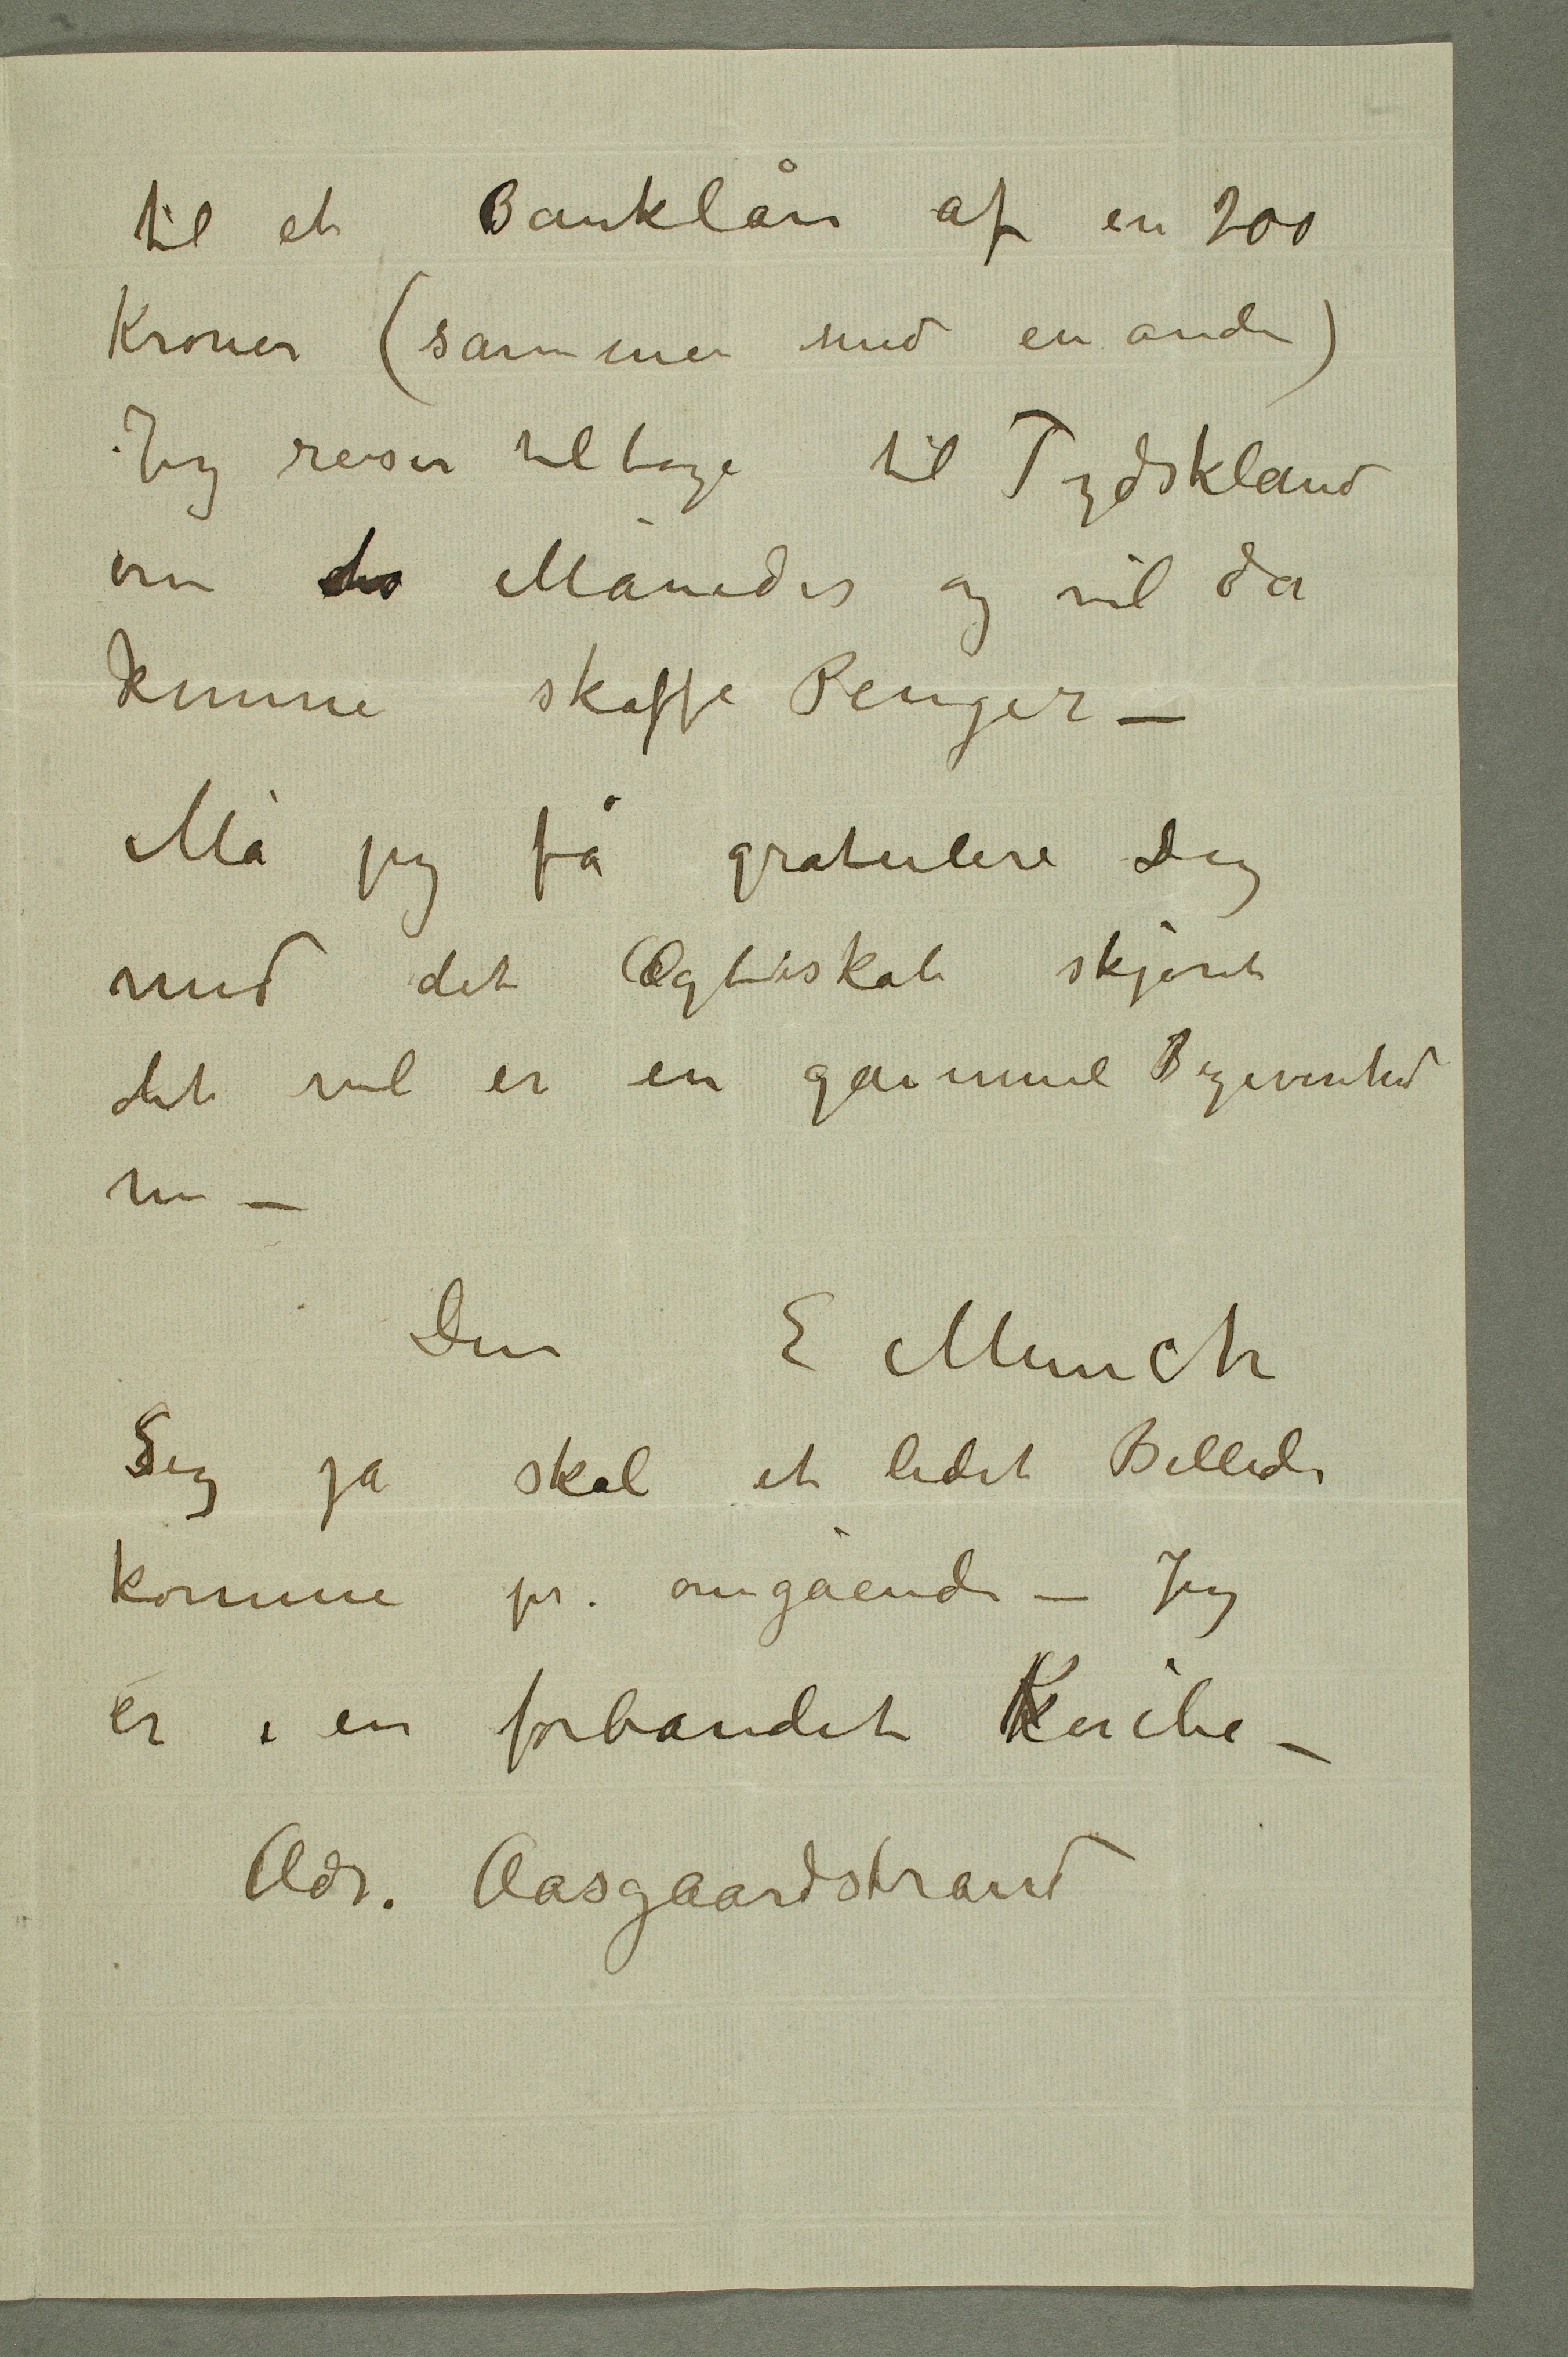 til et Banklån af en 200
Kroner (sammen med en anden)
Jeg reiser tilbage til Tydskland
om to Måneder og vil da
kunne skaffe Penger —
Må jeg få gratulere Dig
med det Ægteskab skjønt
det vel er en gammel Begivenhed
nu —
Din E Munch
Sig ja skal et lidet Billede
komme pr. omgående — Jeg
er i en forbandet Knibe —
Adr. Aasgaardstrand